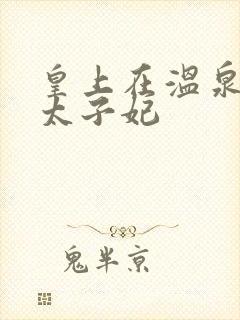 皇上在温泉
太子妃
鬼半京